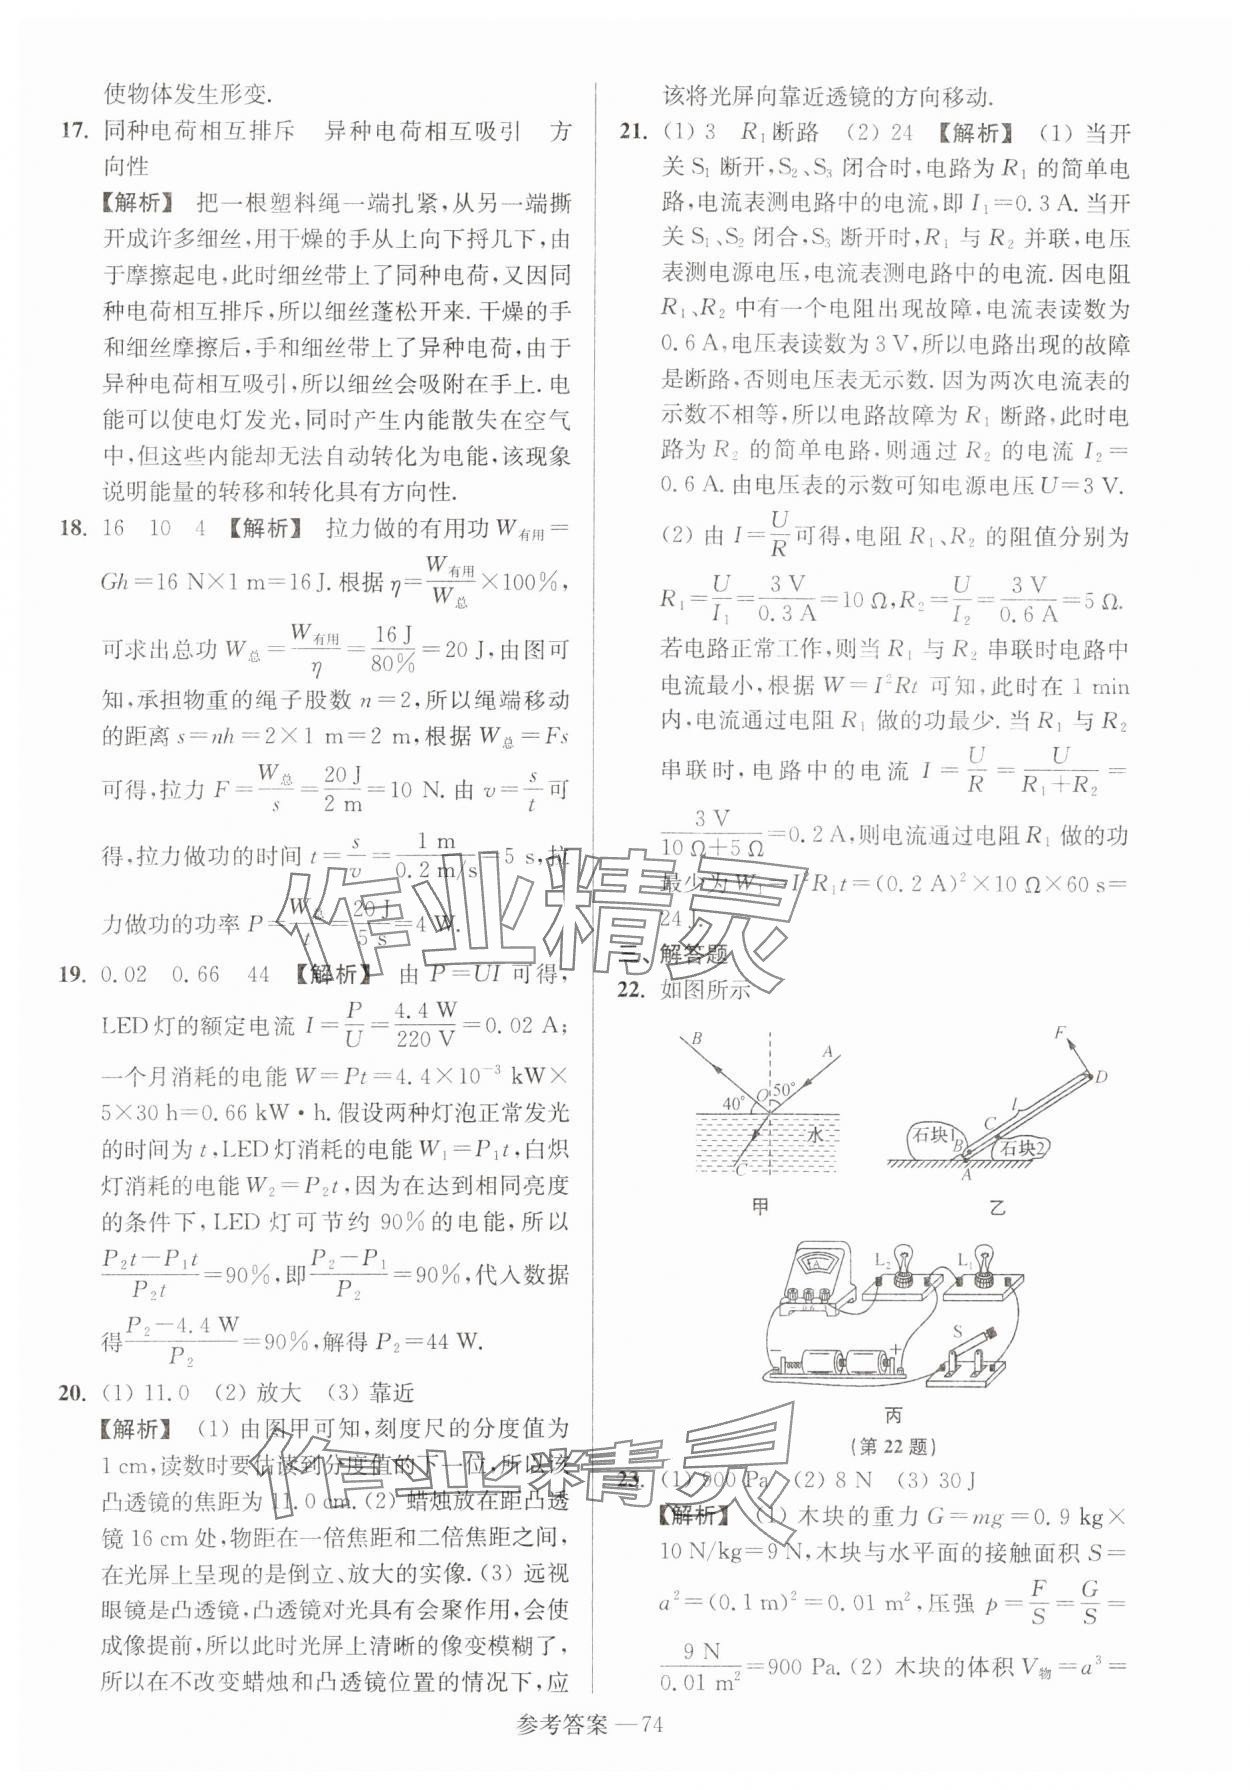 使物体发生形变.
17. 同种电荷相互排斥　异种电荷相互吸引　方
向性
【解析】　把一根塑料绳一端扎紧,从另一端撕
开成许多细丝,用干燥的手从上向下捋几下,由
于摩擦起电,此时细丝带上了同种电荷,又因同
种电荷相互排斥,所以细丝蓬松开来. 干燥的手
和细丝摩擦后,手和细丝带上了异种电荷,由于
异种电荷相互吸引,所以细丝会吸附在手上. 电
能可以使电灯发光,同时产生内能散失在空气
中,但这些内能却无法自动转化为电能,该现象
说明能量的转移和转化具有方向性.
18. 16　10　4 【解析】　拉力做的有用功 W有用=
Gh=16 N×1 m=16 J. 根据 η=W有用/W总×100%,
可求出总功 W总=W有用/η=16 J/80%=20 J,由图可
知,承担物重的绳子股数 n=2,所以绳端移动
的距离 s=nh=2×1 m=2 m,根据 W总=Fs
可得,拉力 F=W总/s=20 J/2 m=10 N. 由 v=s/t可
得,拉力做功的时间 t=s/v=1 m/0.2 m/s=5 s,拉
力做功的功率 P=W总/t=20 J/5 s=4 W.
19. 0.02　0.66　44 【解析】　由 P=UI 可得,
LED 灯的额定电流 I=P/U=4.4 W/220 V=0.02 A;
一个月消耗的电能 W=Pt=4.4×10⁻³ kW×
5×30 h=0.66 kW·h. 假设两种灯泡正常发光
的时间为 t,LED 灯消耗的电能 W₁=P₁t,白炽
灯消耗的电能 W₂=P₂t,因为在达到相同亮度
的条件下,LED 灯可节约 90%的电能,所以
P₂t−P₁t/P₂t=90%,即P₂−P₁/P₂=90%,代入数据
得P₂−4.4 W/P₂=90%,解得 P₂=44 W.
20. (1) 11.0　(2) 放大　(3) 靠近
【解析】　(1) 由图甲可知,刻度尺的分度值为
1 cm,读数时要估读到分度值的下一位,所以该
凸透镜的焦距为 11.0 cm. (2) 蜡烛放在距凸透
镜 16 cm 处,物距在一倍焦距和二倍焦距之间,
在光屏上呈现的是倒立、放大的实像. (3) 远视
眼镜是凸透镜,凸透镜对光具有会聚作用,会使
成像提前,所以此时光屏上清晰的像变模糊了,
所以在不改变蜡烛和凸透镜位置的情况下,应
该将光屏向靠近透镜的方向移动.
21. (1) 3　R₁断路　(2) 24 【解析】　(1) 当开
关 S₁ 断开,S₂、S₃ 闭合时,电路为 R₁ 的简单电
路,电流表测电路中的电流,即 I₁=0.3 A. 当开
关 S₁、S₂ 闭合,S₃ 断开时,R₁ 与 R₂ 并联,电压
表测电源电压,电流表测电路中的电流. 因电阻
R₁、R₂ 中有一个电阻出现故障,电流表读数为
0.6 A,电压表读数为 3 V,所以电路出现的故障
是断路,否则电压表无示数. 因为两次电流表的
示数不相等,所以电路故障为 R₁ 断路,此时电
路为 R₂ 的简单电路,则通过 R₂ 的电流 I₂=
0.6 A. 由电压表的示数可知电源电压 U=3 V.
(2) 由 I=U/R可得,电阻 R₁、R₂ 的阻值分别为
R₁=U/I₁=3 V/0.3 A=10 Ω,R₂=U/I₂=3 V/0.6 A=5 Ω.
若电路正常工作,则当 R₁ 与 R₂ 串联时电路中
电流最小,根据 W=I²Rt 可知,此时在 1 min
内,电流通过电阻 R₁ 做的功最少. 当 R₁ 与 R₂
串联时,电路中的电流 I=U/R=U/R₁+R₂=
3 V/10 Ω+5 Ω=0.2 A,则电流通过电阻 R₁ 做的功
最少为 W₁=I²R₁t=(0.2 A)²×10 Ω×60 s=
24 J.
三、解答题
22. 如图所示
B
A
O
50°
40°
水
C
甲
F
D
l
C
B
石块1
石块2
A
乙
A
0.6
L₂
L₁
S
−
+
丙
(第 22 题)
23. (1) 900 Pa　(2) 8 N　(3) 30 J
【解析】　(1) 木块的重力 G=mg=0.9 kg×
10 N/kg=9 N,木块与水平面的接触面积 S=
a²=(0.1 m)²=0.01 m²,压强 p=F/S=G/S=
9 N/0.01 m²=900 Pa. (2) 木块的体积 V物=a³=
参考答案 —74
作业精灵
作业精灵